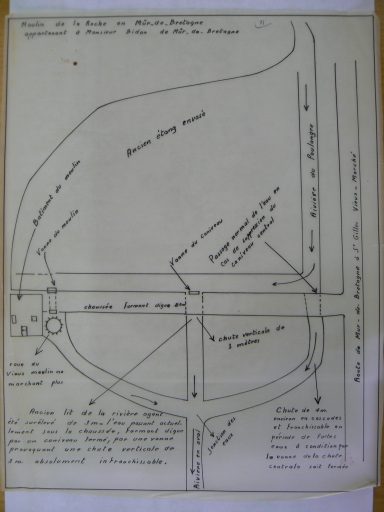 Moulin de la Roche en Mûr_de_Bretagne
appartenant à Monsieur Bidan de Mûr_de_Bretagne
Ancien étang envasé
Batiment du moulin
Vanne du moulin
Vanne du caniveau
Passage normal de l'eau en
cas de suppression du
caniveau central
Rivière du Poulancre
Route de Mur_de_Bretagne à St Gilles Vieux_Marché
chaussée formant digue
chute verticale de
3 mètres
roue du
Vieux moulin ne
marchant plus
Ancien lit de la rivière ayant
été surélevé de 3m, l'eau passant actuel_
lement sous la chaussée, formant digue
par un caniveau fermé, par une vanne
provoquant une chute verticale de
3m absolument infranchissable.
Jonction des
eaux
Rivière en aval
Chute de 4m
environ en cascades
et franchissable en
période de fortes
eaux à condition que
la vanne de la chute
centrale soit fermée